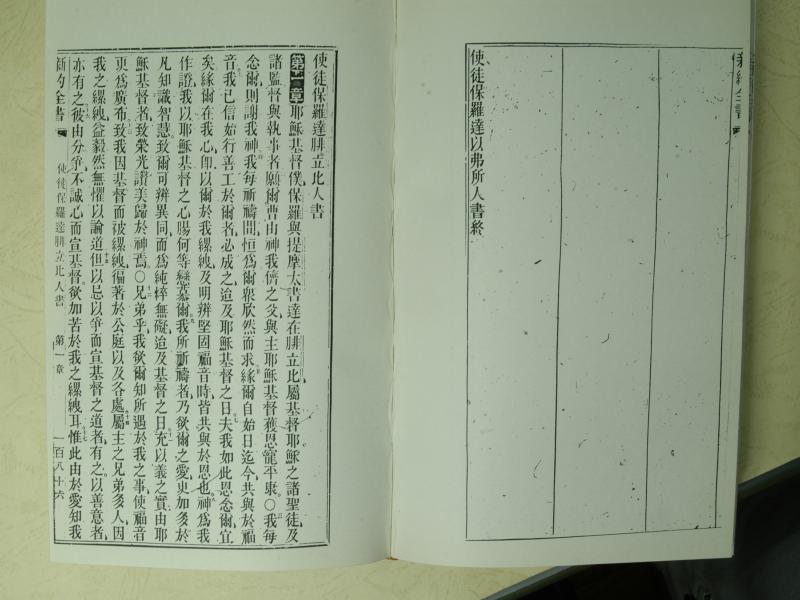 使徒保羅達以弗所人書終
使徒保羅達腓立比人書
第一章耶穌基督僕保羅與提摩太書達在腓立比屬基督耶穌之諸聖徒及
諸監督與執事者願爾曹由神我儕之父與主耶穌基督獲恩寵平康〇我每
念爾則謝我神我每祈禱間恒爲爾衆欣然而求緣爾自始日迄今共與於福
音我已信始行善工於爾者必成之迨及耶穌基督之日夫我如此思念爾宜
矣緣爾在我心卽以爾於我縲絏及明辨堅固福音時皆共與於恩也神爲我
作證我以耶穌基督之心腸何等戀慕爾我所祈禱者乃欲爾之愛更加多於
凡知識智慧致爾可辨異同而爲純粹無礙迨及基督之日充以義之實由耶
穌基督者致榮光讚美歸於神焉〇兄弟乎我欲爾知所遇於我之事使福音
更爲廣布致我因基督而被縲絏徧著於公庭以及各處屬主之兄弟多人因
我之縲絏益毅然無懼以論道但以忌以爭而宣基督之道者有之以善意者
亦有之彼由分爭不誠心而宣基督欲加苦於我之縲絏耳惟此由於愛知我
新約全書 使徒保羅達腓立比人書 第一章 一百八十六